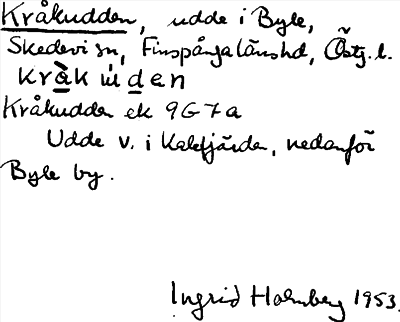 Kråkudden, udde i Byle,
Skedevi sn, Finspånga länshd, Östg. l.
Kråkudden ek 9G7a
Udde v. i Kalvfjärden, nedanför
Byle by.
Ingrid Holmberg 1953.